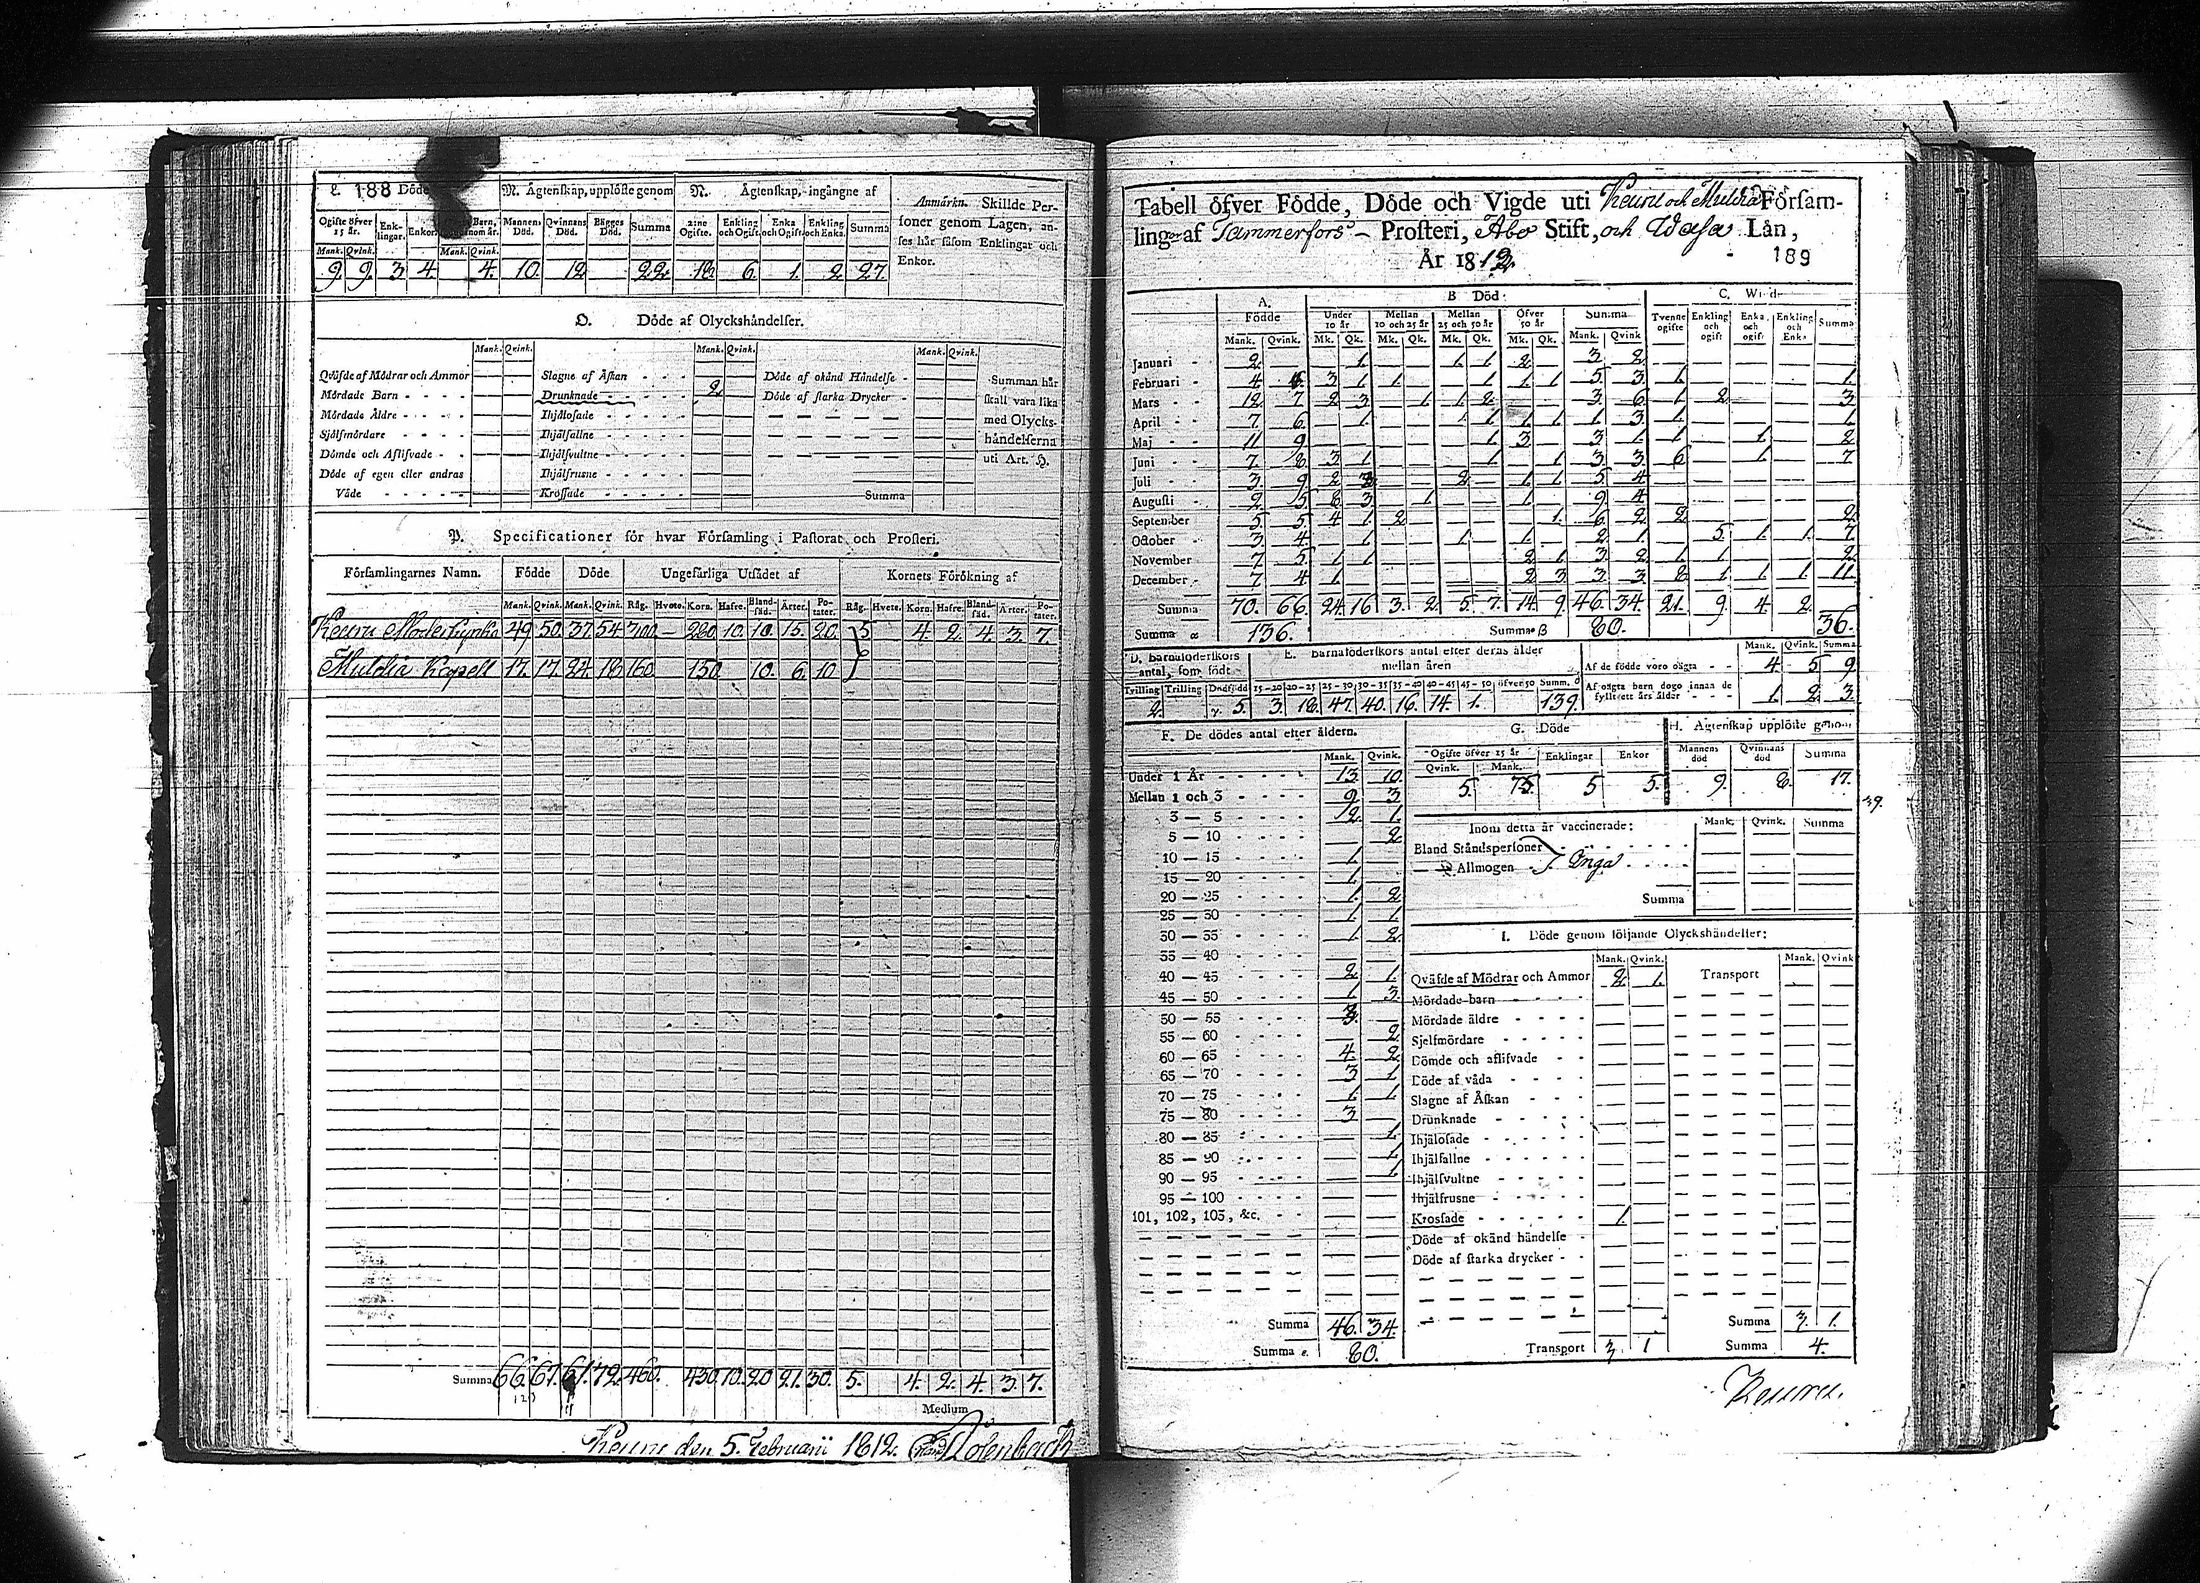 L. 188 Döde
N. Ägtenskap, upplöste genom
N. Ägtenskap, ingångne af
Anmärkn. Skillde Per-
soner genom Lagen, an-
ses här såsom Enklingar och
Enkor.
Ogifte öfver 15 år. Enk-lingar. Enkor. Barn, Mannens Död. Qvinnans Död. Bägges Död. Summa Ogifte. Enkling och Ogift. Enka och Ogift. Enkling och Enka. Summa
Mank. Qvink. Mank. Qvink.
9. 9. 3. 4. 4. 10. 12 22. 18 6. 1. 2 27.
O. Döde af Olyckshändelser.
Mank. Qvink. Mank. Qvink. Mank. Qvink.
Qväfde af Mödrar och Ammor Slagne af Åskan Döde af okänd Händelse
Mördade Barn Drunknade 2 Döde af starka Drycker
Mördade Äldre Ihjälosade
Sjålfmördare Ihjälfallne
Dömde och Aflifvade Ihjälsvultne
Döde af egen eller andras Ihjälfrusne
Våde Krossade Summa
Summan här
skall vara lika
med Olycks-
händelserna
uti Art. H.
P. Specificationer för hvar Församling i Pastorat och Prosteri.
Församlingarnes Namn. Födde Döde Ungefärliga Utsädet af Kornets Förökning af
Mank. Qvink. Mank. Qvink. Råg. Hvete. Korn. Hafre. Bland-säd. Ärter. Po-tater. Råg. Hvete. Korn. Hafre. Bland-säd. Ärter. Po-tater.
Keuru Moderkyrka 49 50. 37. 54 300 — 280 10. 10. 15. 20. 5 4. 2. 4. 3. 7.
Multia Kapell 17. 17. 24. 18 160 150 10. 6. 10
Summa 66. 67. 61. 72. 460. 430. 10. 20 21. 30. 5. 4. 2. 4. 3. 7.
Medium
Keuru den 5. Februarii 1812.
Tabell öfver Födde, Döde och Vigde uti Keuru och Multia Försam-
lingar af Tammerfors Prosteri, Åbo Stift, och Wasa Län,
År 1812.
189
A. Födde B Död C. Wigde
Under 10 år Mellan 10 och 25 år Mellan 25 och 50 år Öfver 50 år Summa Tvenne ogifte Enkling och ogift Enka och ogift Enkling och Enka Summa
Mank. Qvink. Mk. Qk. Mk. Qk. Mk. Qk. Mk. Qk. Mank. Qvink
Januari 2. 1. 1. 1 2 3 2
Februari 4 6. 3 1 1. 1 1. 1 5. 3. 1. 1.
Mars 12 7 2 3 1 1 2 3 6. 1 2 3
April 7 6. 1. 1 1 1 1 3. 1. 1
Maj 11 9 1 3 3 1 1 1 2
Juni 7. 8. 3 1 1 1 3 3 6 1 7
Juli 3. 9. 2 3 2 1 1 5 4
Augusti 2 5 8 3 1 1 9 4
September 5 5 4 1. 2 1. 6 2 2 2
October 3 4. 1 1 1. 2 1 5. 1. 1. 7.
November 7 5. 1 1 2 1 3 2 1 1 2
December 7 4 1 2 3 3 3 8 1 1 1 11
Summa 70. 66. 24. 16 3. 2. 5. 7. 14. 9. 46. 34. 21. 9. 4 2.
Summa α 136. Summa β 80. 36.
D. Barnaföderskors antal, som födt
Tvilling Trilling Dödfödd
2. 5.
E. Barnaföderskors antal efter deras ålder mellan åren
15–20 20–25 25–30 30–35 35–40 40–45 45–50 öfver 50 Summ. δ
3. 18. 47. 40. 16. 14. 1. 139.
Mank. Qvink. Summa
Af de födde voro oägta 4 5 9
Af oägta barn dogo innan de fyllt ett års ålder 1. 2 3.
F. De dödes antal efter åldern.
Mank. Qvink.
Under 1 År 13 10
Mellan 1 och 3 9 3
3 — 5 2. 1.
5 — 10 2
10 — 15 1
15 — 20 1.
20 — 25 1. 2
25 — 30 1 1
30 — 35 1 2
35 — 40
40 — 45 2 1
45 — 50 1 3.
50 — 55 3.
55 — 60 2
60 — 65 4 2
65 — 70 3 1
70 — 75 1 1
75 — 80 3
80 — 85 1.
85 — 90 1
90 — 95 1
95 — 100
101, 102, 103, &c.
Summa 46. 34.
Summa ε. 80.
G. Döde
Ogifte öfver 15 år Enklingar Enkor
Qvink. Mank.
5. 5 5.
H. Ägtenskap upplöste genom
Mannens död Qvinnans död Summa
9. 8. 17.
Inom detta år vaccinerade: Mank. Qvink. Summa
Bland Ståndspersoner
Allmogen Inga
Summa
I. Döde genom följande Olyckshändelser:
Mank. Qvink. Mank. Qvink
Qväfde af Mödrar och Ammor 2 1. Transport
Mördade barn
Mördade äldre
Sjelfmördare
Dömde och aflifvade
Döde af våda
Slagne af Åskan
Drunknade
Ihjälosade
Ihjälfallne
Ihjälsvultne
Ihjälfrusne
Krossade 1.
Döde af okänd händelse
Döde af starka drycker
Summa 3. 1.
Transport 3 1 Summa 4.
Keuru.